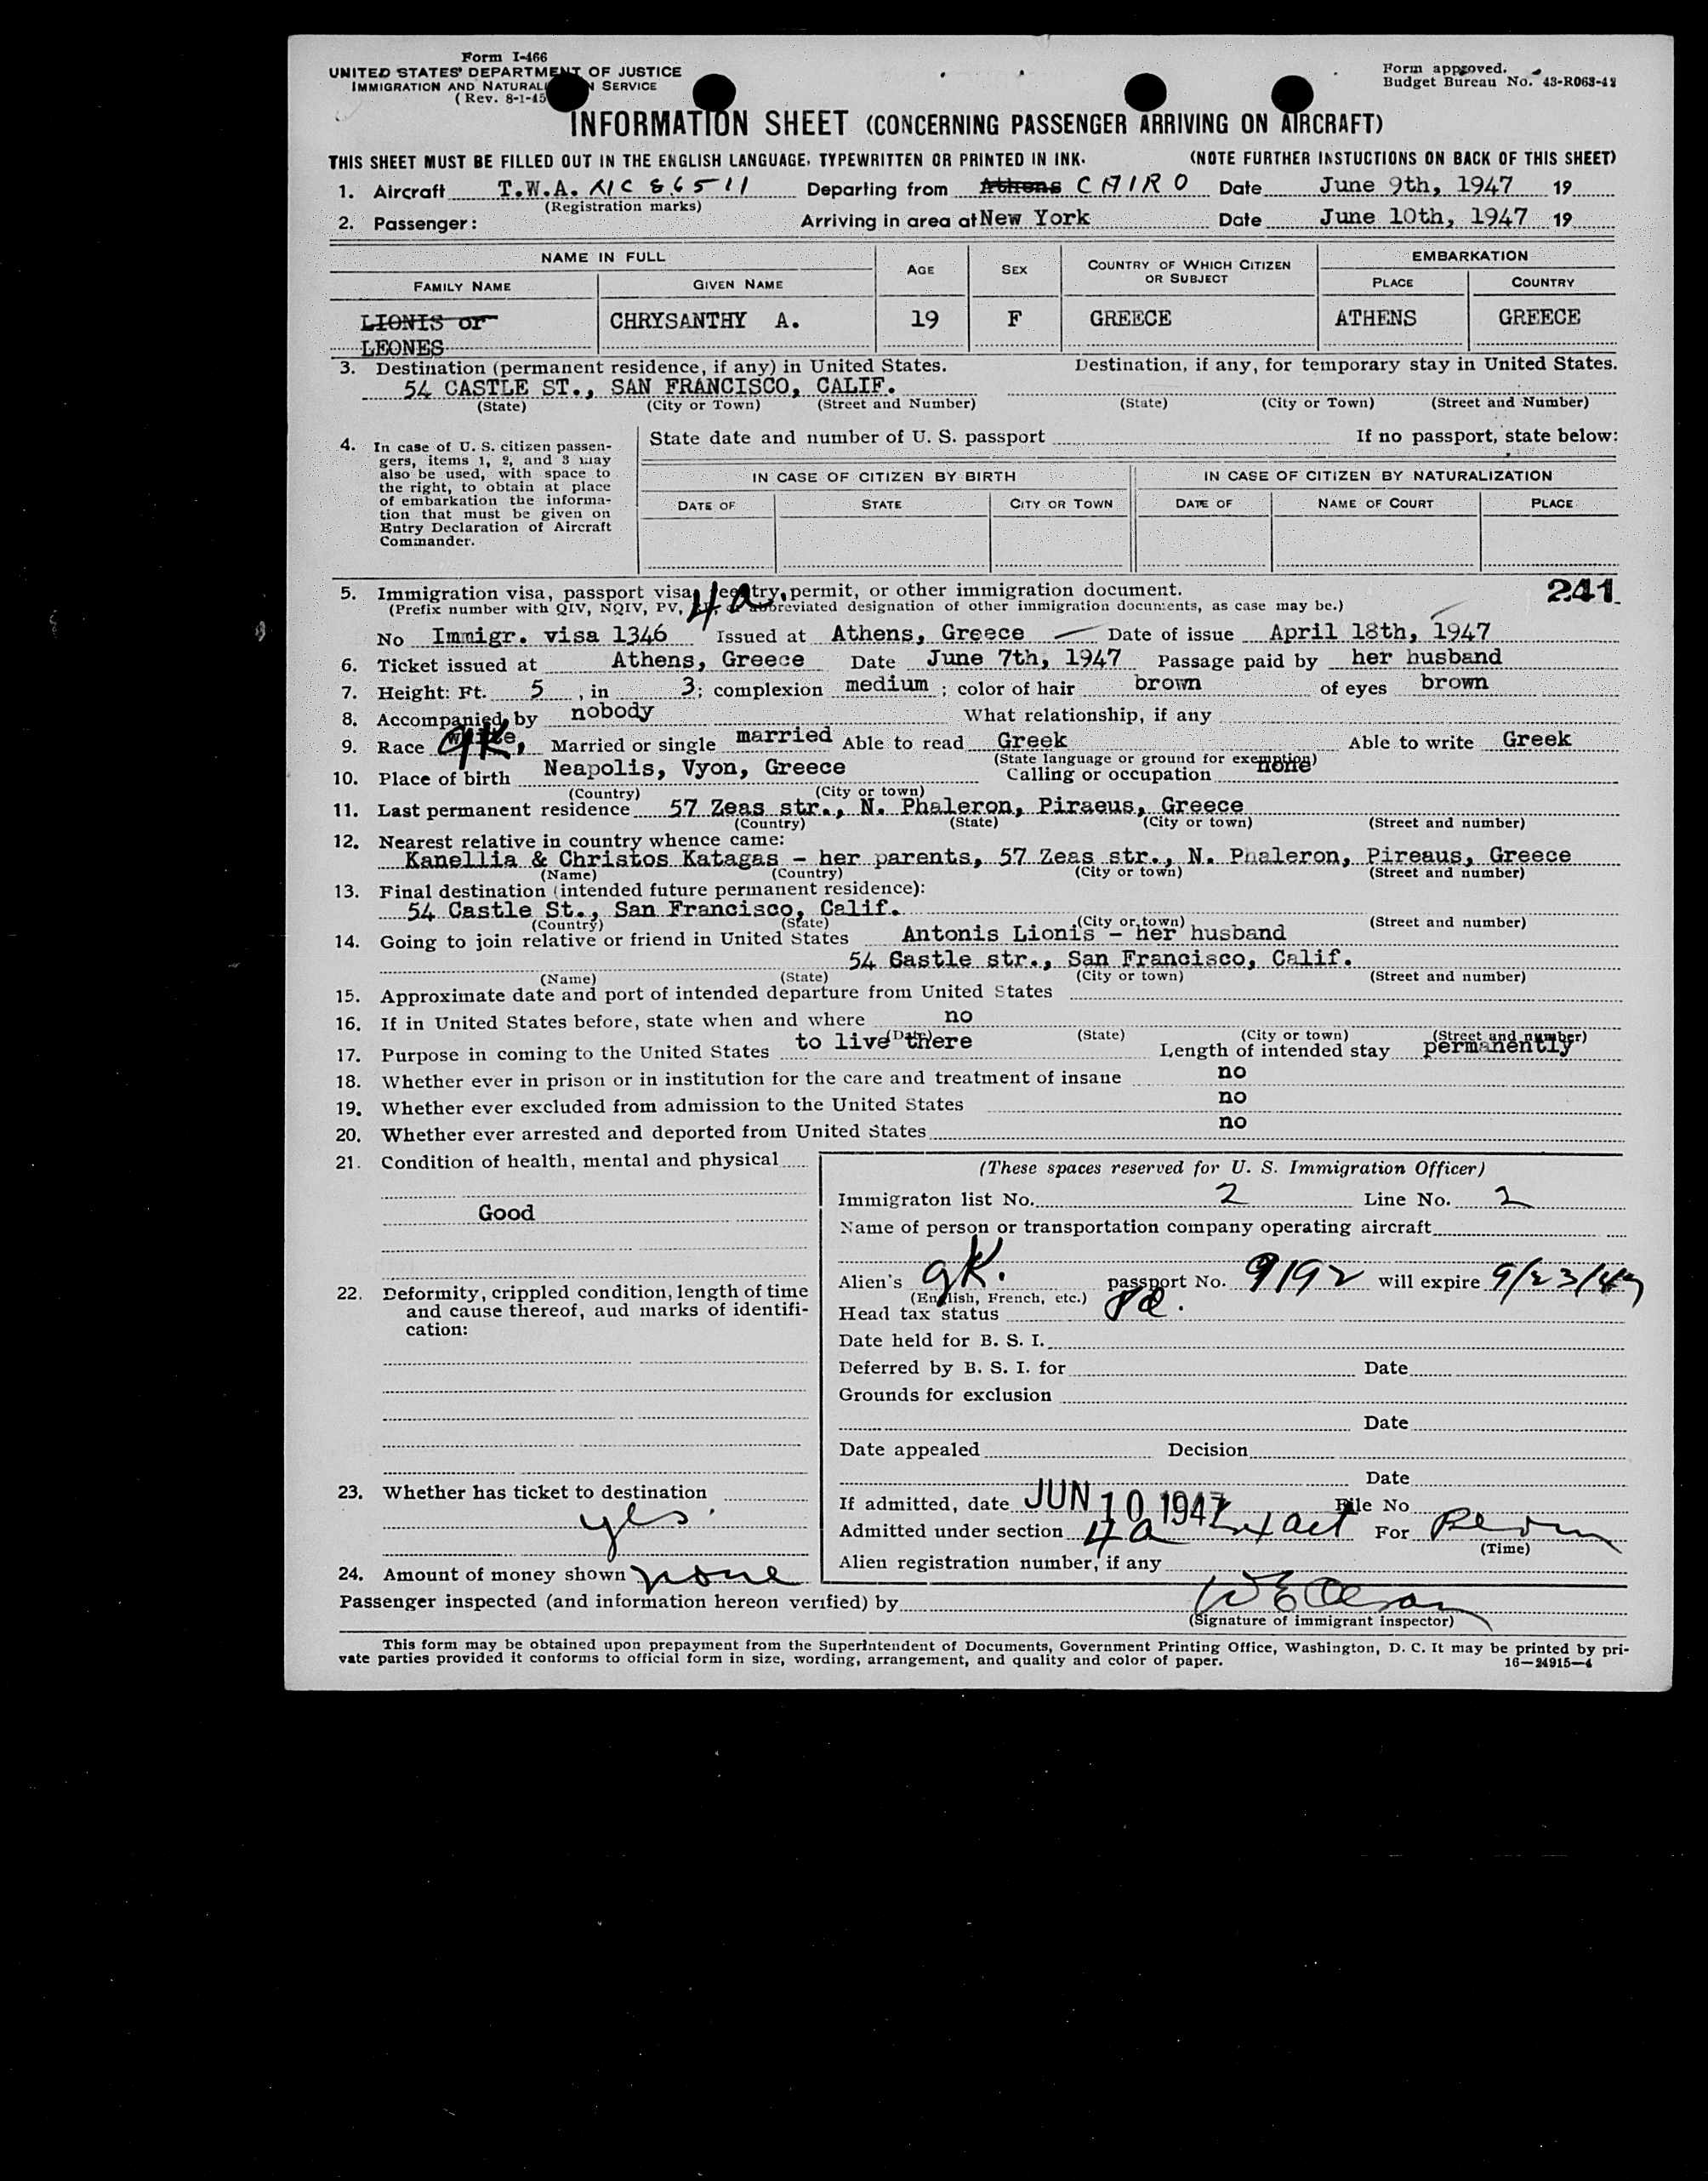 Form I-466
UNITED STATES DEPARTMENT OF JUSTICE
IMMIGRATION AND NATURALI N SERVICE
(Rev. 8-1-45
Form approved.
Budget Bureau No. 43-R063-42
INFORMATION SHEET (CONCERNING PASSENGER ARRIVING ON AIRCRAFT)
THIS SHEET MUST BE FILLED OUT IN THE ENGLISH LANGUAGE, TYPEWRITTEN OR PRINTED IN INK. (NOTE FURTHER INSTUCTIONS ON BACK OF THIS SHEET)
1. Aircraft T.W.A. N C 86511 Departing from Athens CAIRO Date June 9th, 1947 19
(Registration marks)
2. Passenger: Arriving in area at New York Date June 10th, 1947 19
NAME IN FULL AGE SEX COUNTRY OF WHICH CITIZEN OR SUBJECT EMBARKATION
FAMILY NAME GIVEN NAME PLACE COUNTRY
LIONIS or CHRYSANTHY A. 19 F GREECE ATHENS GREECE
LEONES
3. Destination (permanent residence, if any) in United States. Destination, if any, for temporary stay in United States.
54 CASTLE ST., SAN FRANCISCO, CALIF.
(State) (City or Town) (Street and Number) (State) (City or Town) (Street and Number)
4. In case of U. S. citizen passen-
gers, items 1, 2, and 3 may
also be used, with space to
the right, to obtain at place
of embarkation the informa-
tion that must be given on
Entry Declaration of Aircraft
Commander.
State date and number of U. S. passport If no passport, state below:
IN CASE OF CITIZEN BY BIRTH IN CASE OF CITIZEN BY NATURALIZATION
DATE OF STATE CITY OR TOWN DATE OF NAME OF COURT PLACE
5. Immigration visa, passport visa, reentry permit, or other immigration document. 241
4a
(Prefix number with QIV, NQIV, PV, abbreviated designation of other immigration documents, as case may be.)
No Immigr. visa 1346 Issued at Athens, Greece Date of issue April 18th, 1947
6. Ticket issued at Athens, Greece Date June 7th, 1947 Passage paid by her husband
7. Height: Ft. 5 , in 3; complexion medium ; color of hair brown of eyes brown
8. Accompanied by nobody What relationship, if any
9. Race white GK. Married or single married Able to read Greek Able to write Greek
(State language or ground for exemption)
10. Place of birth Neapolis, Vyon, Greece Calling or occupation none
(Country) (City or town)
11. Last permanent residence 57 Zeas str., N. Phaleron, Piraeus, Greece
(Country) (State) (City or town) (Street and number)
12. Nearest relative in country whence came:
Kanellia & Christos Katagas - her parents, 57 Zeas str., N. Phaleron, Pireaus, Greece
(Name) (Country) (City or town) (Street and number)
13. Final destination (intended future permanent residence):
54 Castle St., San Francisco, Calif.
(Country) (State) (City or town) (Street and number)
14. Going to join relative or friend in United States Antonis Lionis - her husband
54 Gastle str., San Francisco, Calif.
(Name) (State) (City or town) (Street and number)
15. Approximate date and port of intended departure from United States
16. If in United States before, state when and where no
(Date) (State) (City or town) (Street and number)
17. Purpose in coming to the United States to live there Length of intended stay permanently
18. Whether ever in prison or in institution for the care and treatment of insane no
19. Whether ever excluded from admission to the United States no
20. Whether ever arrested and deported from United States no
21. Condition of health, mental and physical
Good
22. Deformity, crippled condition, length of time
and cause thereof, aud marks of identifi-
cation:
23. Whether has ticket to destination
yes.
24. Amount of money shown none
(These spaces reserved for U. S. Immigration Officer)
Immigraton list No. 2 Line No. 2
Name of person or transportation company operating aircraft
Alien's GK. passport No. 9192 will expire 9/23/47
(English, French, etc.)
Head tax status Pd.
Date held for B. S. I.
Deferred by B. S. I. for Date
Grounds for exclusion
Date
Date appealed Decision
Date
If admitted, date JUN 10 1947 File No
Admitted under section 4a act For Perm
(Time)
Alien registration number, if any
Passenger inspected (and information hereon verified) by W E Olson
(Signature of immigrant inspector)
This form may be obtained upon prepayment from the Superintendent of Documents, Government Printing Office, Washington, D. C. It may be printed by pri-
vate parties provided it conforms to official form in size, wording, arrangement, and quality and color of paper. 16—24915-4